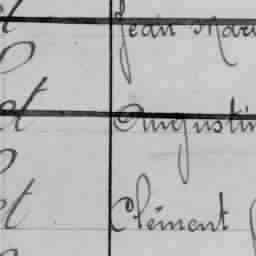 Jean Mari
et Augustin
et Clément